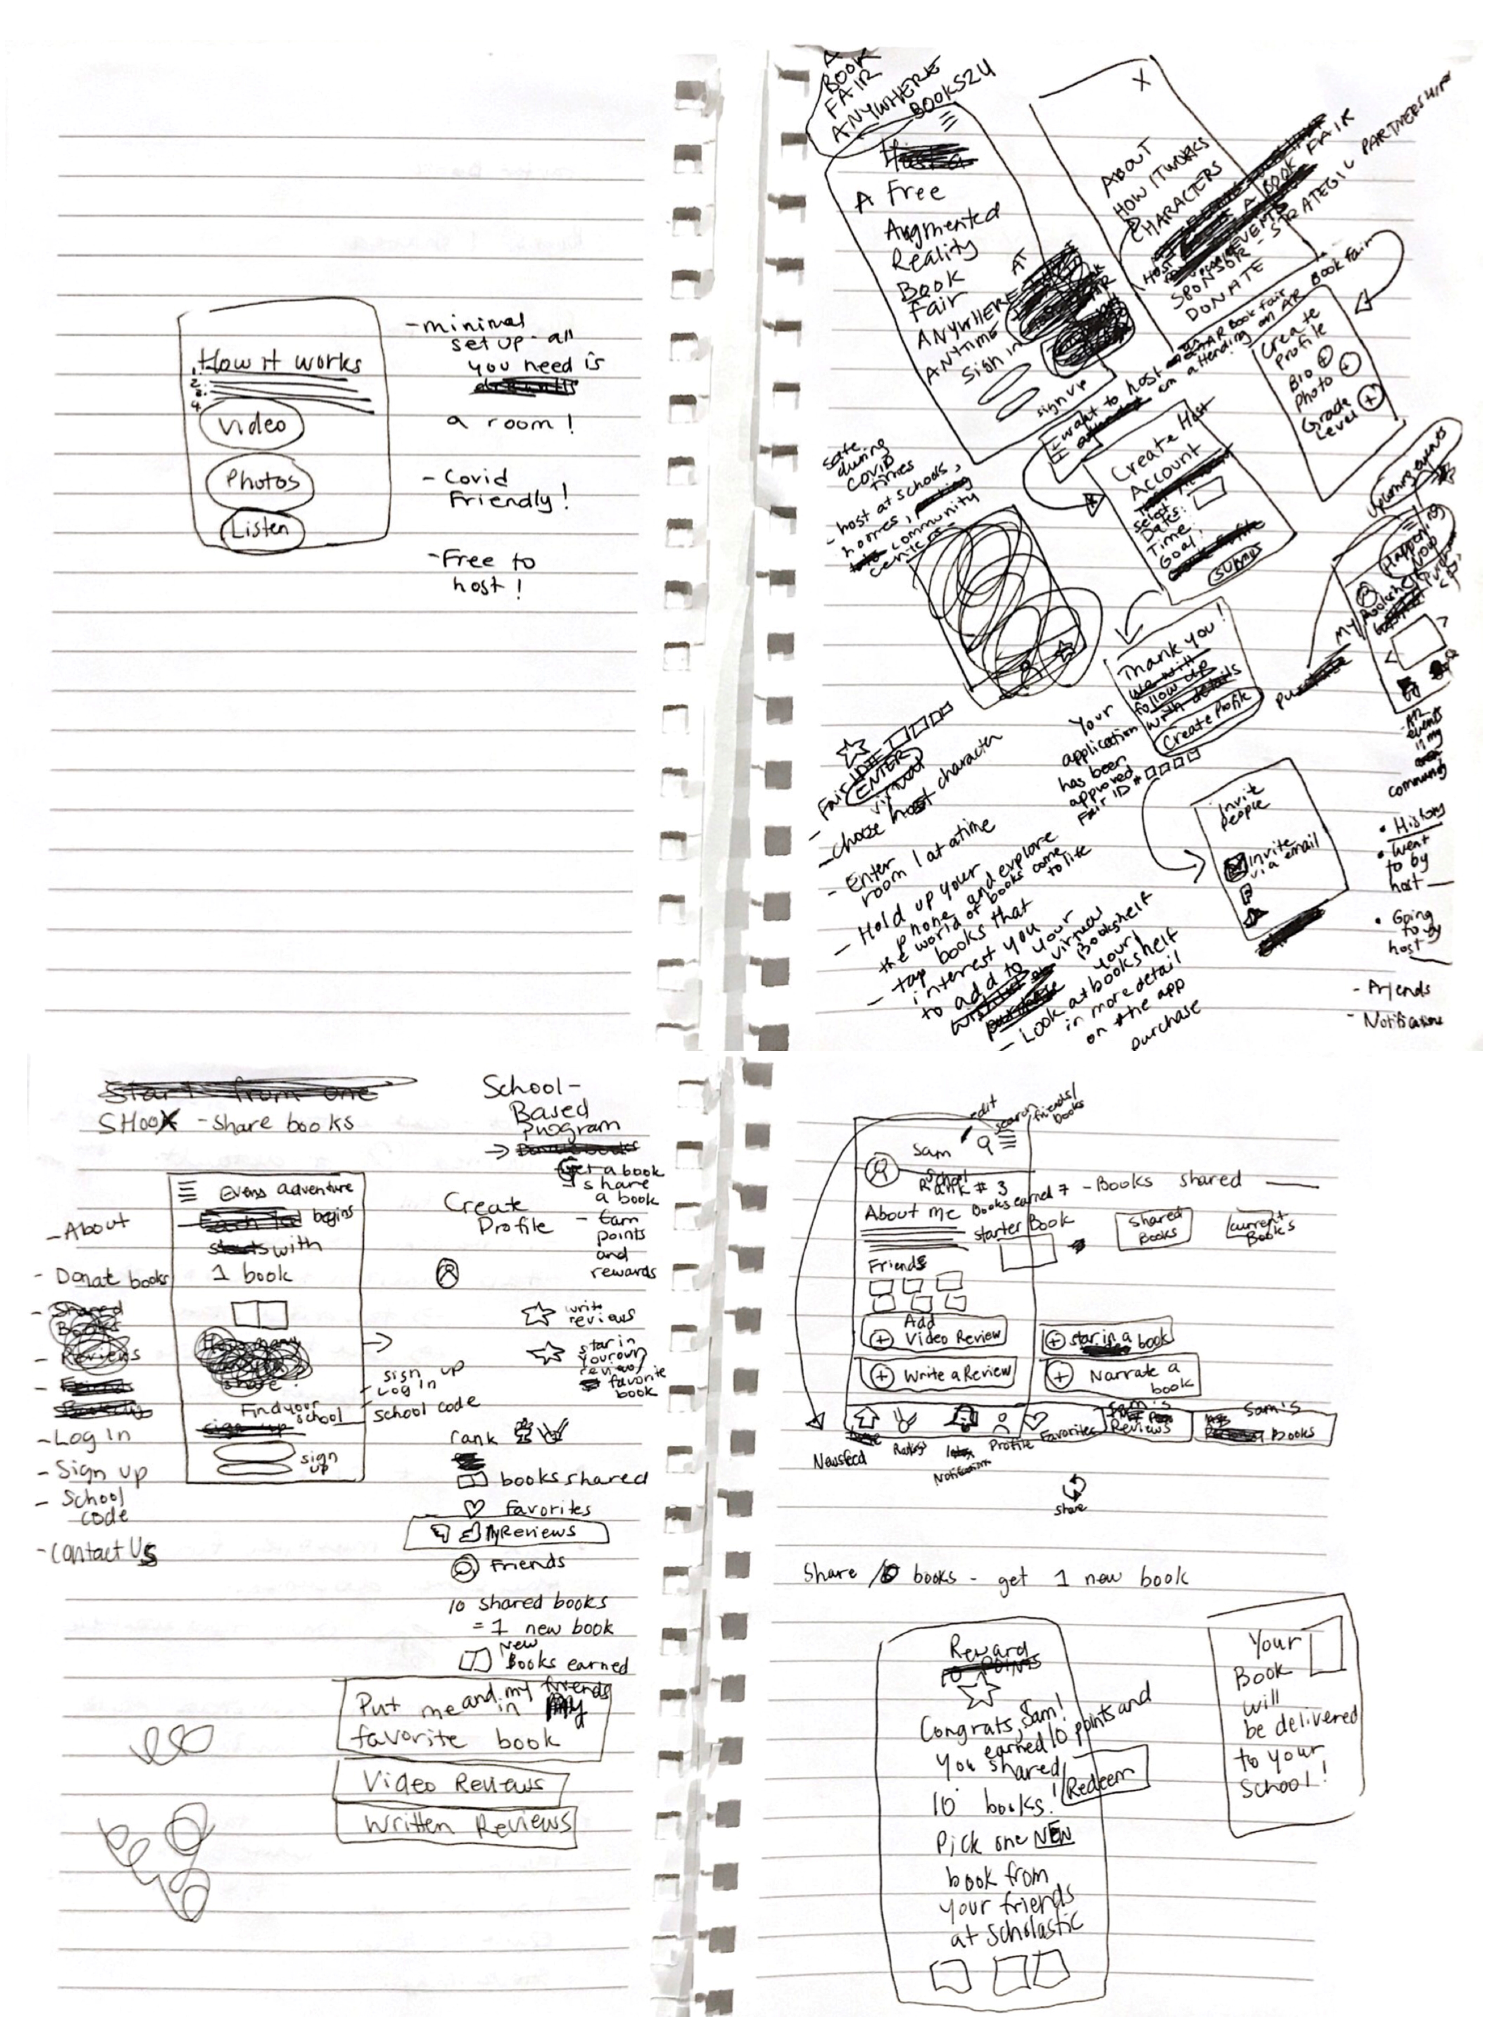 How it works
1.
2.
3.
4.
Video
Photos
Listen
- minimal
set up - all
you need is
a room!
- Covid
Friendly!
- Free to
host!
A
BOOK
FAIR
ANYWHERE
BOOKS2U
A Free
Augmented
Reality
Book
Fair
ANYWHERE
ANYTIME
Sign in
sign up
AT
X
ABOUT
HOW IT WORKS
CHARACTERS
HOST A BOOK FAIR
EVENTS
SPONSOR - STRATEGIC PARTNERSHIP
DONATE
I want to host an AR Book fair
I am attending an AR Book Fair
Create
Profile
Bio +
Photo +
Grade
Level +
Create Host
Account
Select
Dates:
Time:
Goal:
submit
safe
during
covid
times
- host at schools,
homes,
community
centers
Thank you!
we will
follow up
with details
Create Profile
Your
application
has been
approved
Fair ID #
Invite
People
Invite
via email
F
upcoming events
Happening
Now
My Bookshelf
purchase
- All
events
in my
community
• History
• Went
to by
host
• Going
to by
host
- Friends
- Notifications
Fair ID #
ENTER
virtual
- choose host character
- Enter
room 1 at a time
- Hold up your
phone and explore
the world of books come
to life
- tap books that
interest you
to add to your
virtual
Bookshelf
- Look at your
bookshelf
in more detail
on the app
purchase
Start from one
SHOOK - share books
School-
Based
Program
→ Donate books
Get a book
share
a book
- Earn
points
and
rewards
Create
Profile
Evens adventure
begins
starts with
1 book
Find your
school
sign up
sign
up
- About
- Donat books
- Shared
Books
- Reviews
- Log In
- Sign up
- School
code
- Contact Us
sign up
Log in
school code
write
reviews
star in
your own
review/
favorite
book
rank
books shared
favorites
My Reviews
Friends
10 shared books
= 1 new book
New
Books earned
Put me and my friends
in my
favorite book
Video Reviews
Written Reviews
edit
search friends/
books
Sam
School
Rank # 3
Books earned 7 - Books shared
About me
starter Book
Shared
Books
current
Books
Friends
+ Add
Video Review
+ star in a book
+ Write a Review
+ Narrate a
book
Newsfeed
Notifications
Profile
Favorites
Sam's
Reviews
Sam's
Books
share
Share 10 books - get 1 new book
Reward
10 points
Congrats, Sam!
You earned 10 points and
shared
10 books!
Redeem
Pick one NEW
book from
your friends
at scholastic
Your
Book
will
be delivered
to your
school!